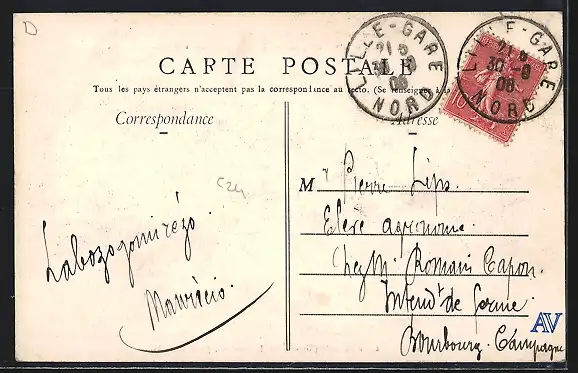 D
LILLE-GARE
21 5
30 -8
08
NORD
LILLE-GARE
21 5
30 -8
08
NORD
CARTE POSTALE
Tous les pays étrangers n'acceptent pas la correspondance au recto. (Se renseigner à
Correspondance
Adresse
10
C24
Mr Pierre Lips.
Elève agronome.
Chez Mr Romain Capon.
Intendt de ferme.
Bourbourg. Campagne
Labozogomirézo.
Mauricio.
AV